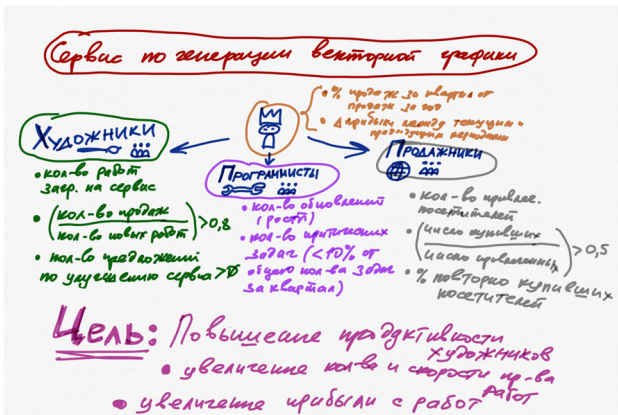 Сервис по генерации векторной графики
• % продаж за квартал от
продаж за год
• Δ прибыли между текущим и
предыдущим периодами
Художники
• кол-во работ
загр. на сервис
• (кол-во продаж / кол-во новых работ) > 0,8
• кол-во предложений
по улучшению сервиса > 0
Программисты
• кол-во обновлений
(рост)
• кол-во критических
задач (<10% от
общего кол-ва задач
за квартал)
Продажники
• кол-во привлеч.
посетителей
• (число купивших / число привлеченных) > 0,5
• % повторно купивших
посетителей
Цель: Повышение продуктивности
художников
• увеличение кол-ва и скорости пр-ва
работ
• увеличение прибыли с работ